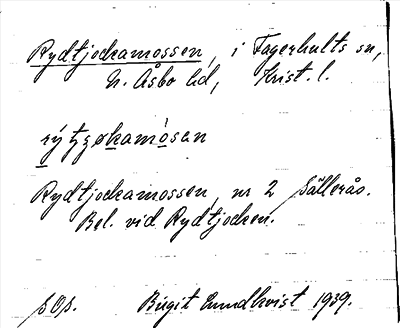 Rydtjockamossen, i Fagerhults sn,
N. Åsbo hd, Krist. l.
rýtyøkamòsen
Rydtjockamossen, nr 2 Sällerås.
Bel. vid Rydtjocken.
Birgit Lundkvist 1939.